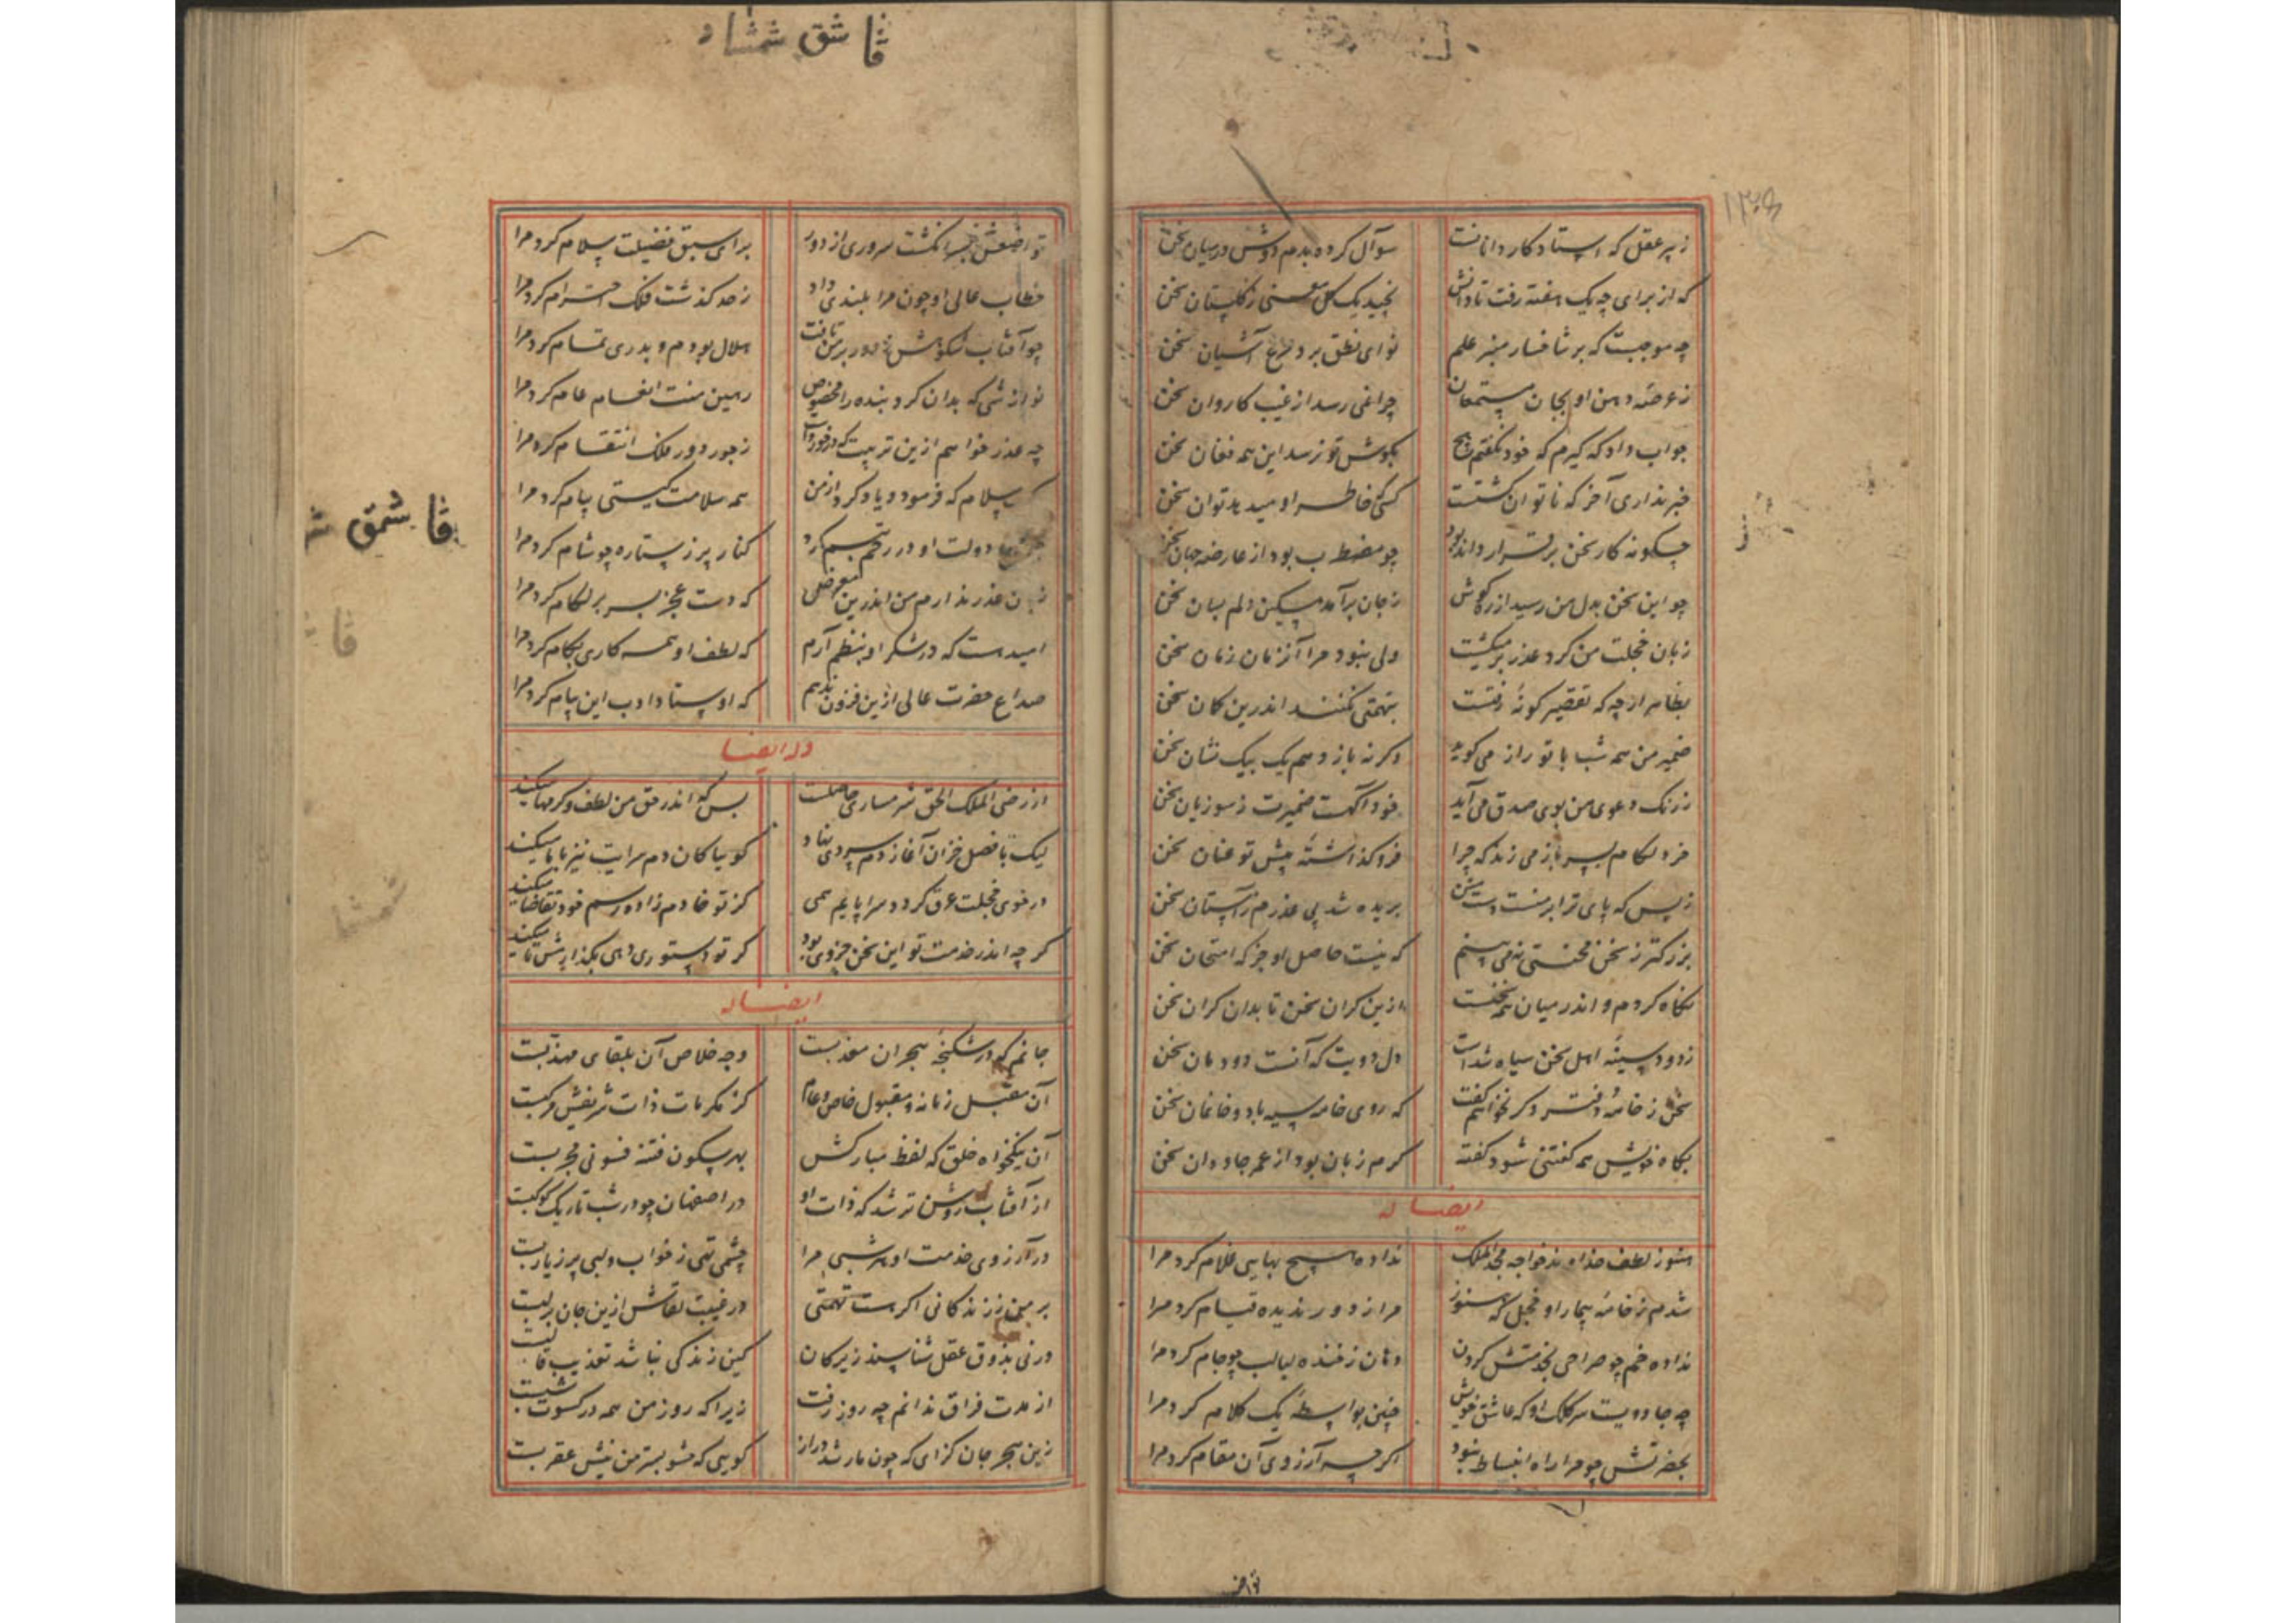 ۱۳۶
ز پیر عقل که استاد کار دانانست سوآل کرده بدم دوش در میان سخن
که از برای چه یک هفته رفت تا دانش نچید یک گل معنی ز گلستان سخن
چه موجبست که بر شاخسار منبر علم نوای نطق نزد مرغ آشیان سخن
ز عرصه دهن او بجان مستمعان چراغی رسد از غیب کاروان سخن
جواب داد که گیرم که خود نگفتم هیچ بگوش تو نرسد این همه فغان سخن
خبر نداری آخر که ناتوان گشتست کسی خاطر او میدید توان سخن
چگونه کار سخن برقرار داند بود چو مضطرب بود از عارضه جهان سخن
چو این سخن بدل من رسید از ره گوش ز جان برآمد مسکین دلم بسان سخن
زبان خجلت من کرد عذر بر میگشت ولی نبود مرا آن زمان زمان سخن
بظاهر ار چه که تقصیر گونه رفتست بتهمتی نکنند اندرین مکان سخن
ضمیر من همه شب با تو راز می گوید وگر نه باز دهم یک بیک نشان سخن
ز رنک دعوی من بوی صدق می آید خود آگهست ضمیرت ز سوز یان سخن
فرو گذاشته پیش تو عنان سخن
ز بس که پای ترا بر منست دست سخن بریده شد پی عذرم ز آستان سخن
بزرکتر ز سخن محنتی نمی بینم که نیست حاصل او جز که امتحان سخن
نگاه کردم و اندر میان همه سخنست ازین کران سخن تا بدان کران سخن
ز دود سینه اهل سخن سیاه شدست دل دویت که آنست دودمان سخن
سخن ز خامه و دفتر دگر نخواهم گفت که روی خامه سیه باد و خانمان سخن
بگاه خویش همه گفتنی شود گفته گرم زبان بود از عمر جاودان سخن
ایضا له
هنوز لطف خداوند خواجه مجد الملک نداده هیچ بهایی غلام کرد مرا
شدم ز خامه بیمار او خجل که هنوز مرا ز دور ندیده قیام کرد مرا
نداده خم چو صراحی بخدمتش گردن دهان ز خنده لبالب چو جام کرد مرا
چه جادویست سر کلک او که عاشق خویش چنین بواسطه یک کلام کرد مرا
بحضرتش چو مرا راه انبساط نبود اگر چه آرزوی آن مقام کرد مرا
قاشق شمشاد
تواضعش سروری از دور برای سبق فضیلت سلام کرد مرا
خطاب عالی او چون مرا بلندی داد ز حد گذشت فلک احترام کرد مرا
چو آفتاب شکوهش ز دور بر من تافت هلال بودم و بدری تمام کرد مرا
نوازشی که بدان کرد بنده را مخصوص رهین منت انعام عام کرد مرا
چه عذر خواهم ازین تربیت که در خور آن ز جور دور فلک انتقام کرد مرا
سلام که فرمود و یاد کرد از من همه سلامت گیتی پیام کرد مرا
دولت او در رخم تبسم کرد کنار پر ز ستاره چو شام کرد مرا
زبان عذر ندارم من اندرین معرض که دست عجز بسر بر لگام کرد مرا
امید هست که در شکر او بنظم آرم که لطف او همه کاری بکام کرد مرا
صداع حضرت عالی ازین فزون ندهم که اوستاد ادب این پیام کرد مرا
وله ایضا
از رضی الملک الحق شرمساری حاصلست بس که اندر حق من لطف و کرمها میکند
لیک با فصل خزان آغاز دم سردی نهاد گوییا کان دم سرایت نیز با ما میکند
در خوی خجلت غرق گردد سراپایم همی کز تو خادم زاده رسم خود تقاضا میکند
گر چه اندر خدمت تو این سخن جزوی بود گر تو دستوری دهی بگذارش تا میکند
ایضا له
جانم که در شکنجه هجران معذبست وجه خلاص آن بلقای مهذبست
آن مقبل زمانه و مقبول خاص و عام کز مکرمات ذات شریفش مرکبست
آن نیکخواه خلق که لفظ مبارکش بهر سکون فتنه فسونی مجربست
از آفتاب روشن تر شد که ذات او در اصفهان چو در شب تاریک کوکبست
در آرزوی خدمت او هر شبی مرا چشمی تهی ز خواب و لبی پر ز یاربست
بر من ز زندکانی اکر هست تهمتی در غیبت لقاش ازین جان بر لبست
ور نی بذوق عقل شناسند زیرکان کین زندکی نباشد تعذیب قالبست
از مدت فراق ندانم چه روز رفت زیرا که روز من همه در کسوت شبست
زین هجر جان گزای که چون مار شد دراز گویی که حشو بستر من نیش عقربست
قاشمق
قا
شمشا